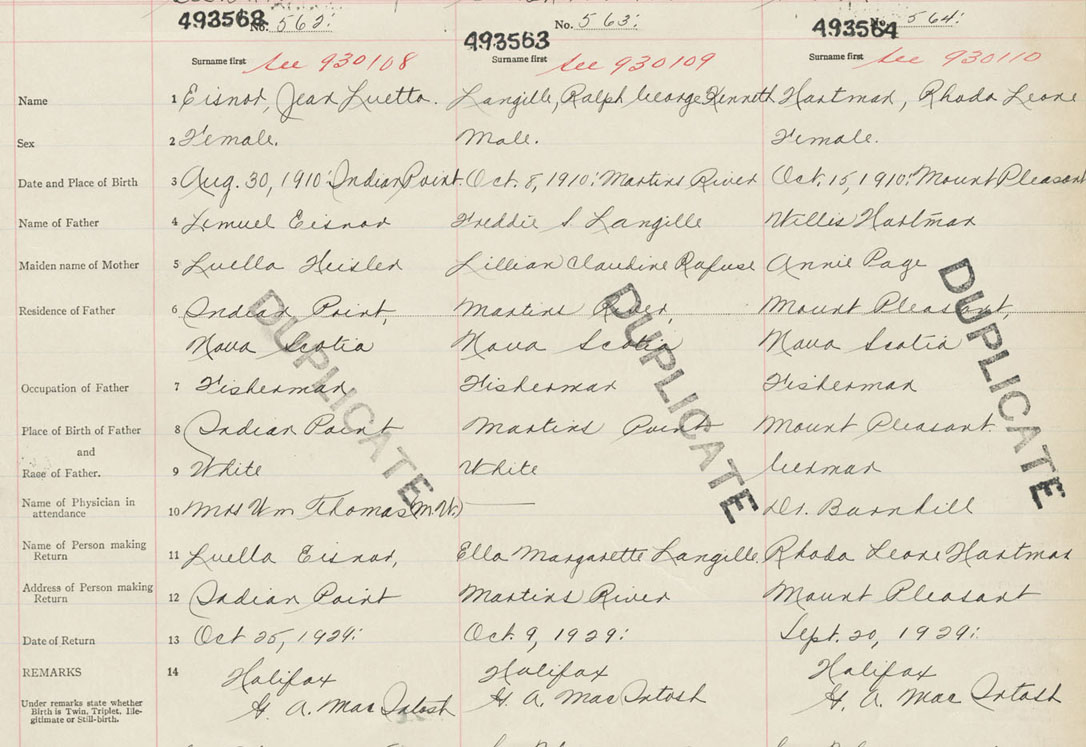 493562 No. 562. 493563 No. 563. 493564 No. 564.
Surname first See 930108 Surname first See 930109 Surname first See 930110
Name 1 Eisnor, Jean Luetta. Langille, Ralph George Kenneth Hartman, Rhoda Leone
Sex 2 Female. Male. Female.
Date and Place of Birth 3 Aug. 30, 1910. Indian Point. Oct. 8, 1910. Martins River Oct. 15, 1910. Mount Pleasant
Name of Father 4 Lemuel Eisnor Freddie S Langille Willis Hartman
Maiden name of Mother 5 Luella Heisler Lillian Claudine Rafuse Annie Page
Residence of Father 6 Indian Point, Martins River, Mount Pleasant,
Nova Scotia Nova Scotia Nova Scotia
DUPLICATE DUPLICATE DUPLICATE
Occupation of Father 7 Fisherman Fisherman Fisherman
Place of Birth of Father 8 Indian Point Martins Point Mount Pleasant.
and
Race of Father. 9 White White German
Name of Physician in attendance 10 Mrs Wm Thomas (M.W.) — Dr. Barnhill
Name of Person making Return 11 Luella Eisnor, Ella Margarette Langille. Rhoda Leone Hartman
Address of Person making Return 12 Indian Point Martins River Mount Pleasant
Date of Return 13 Oct 25, 1929. Oct. 9, 1929. Sept. 20, 1929.
REMARKS 14 Halifax Halifax Halifax
Under remarks state whether Birth is Twin, Triplet, Ille-
gitimate or Still-birth.
G. A. MacIntosh G. A. MacIntosh G. A. MacIntosh